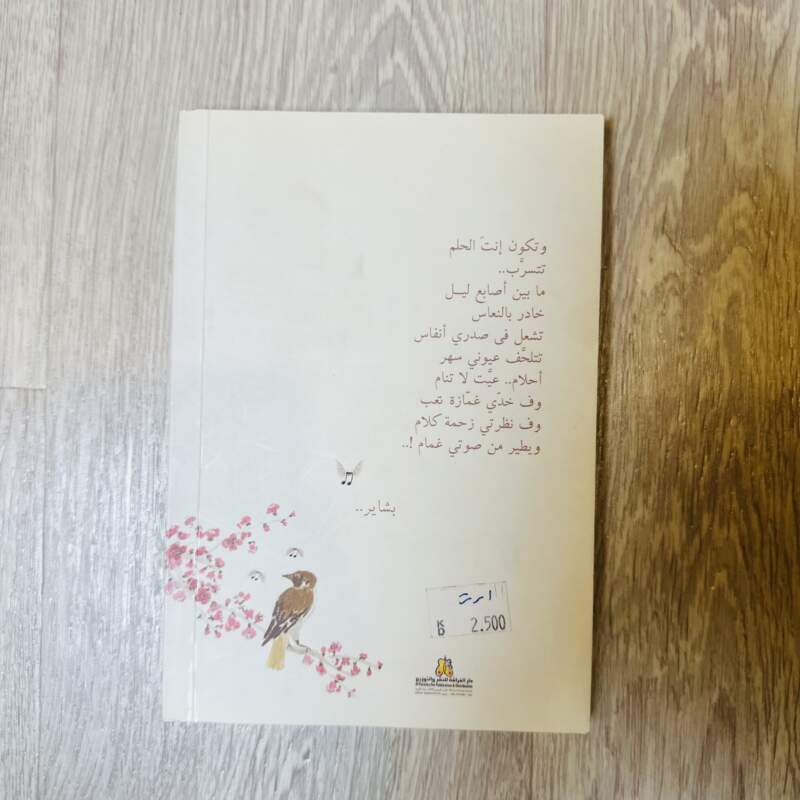 وتكون إنتَ الحلم
تتسرَّب..
ما بين أصابع ليــل
خادر بالنعاس
تشعل فى صدري أنفاس
تتلحَّف عيوني سهر
أحلام.. عيَّت لا تنام
وف خدّي غمّازة تعب
وف نظرتي زحمة كلام
ويطير من صوتي غمام !..
بشاير..
K
D 2.500
دار الفراشة للنشر والتوزيع